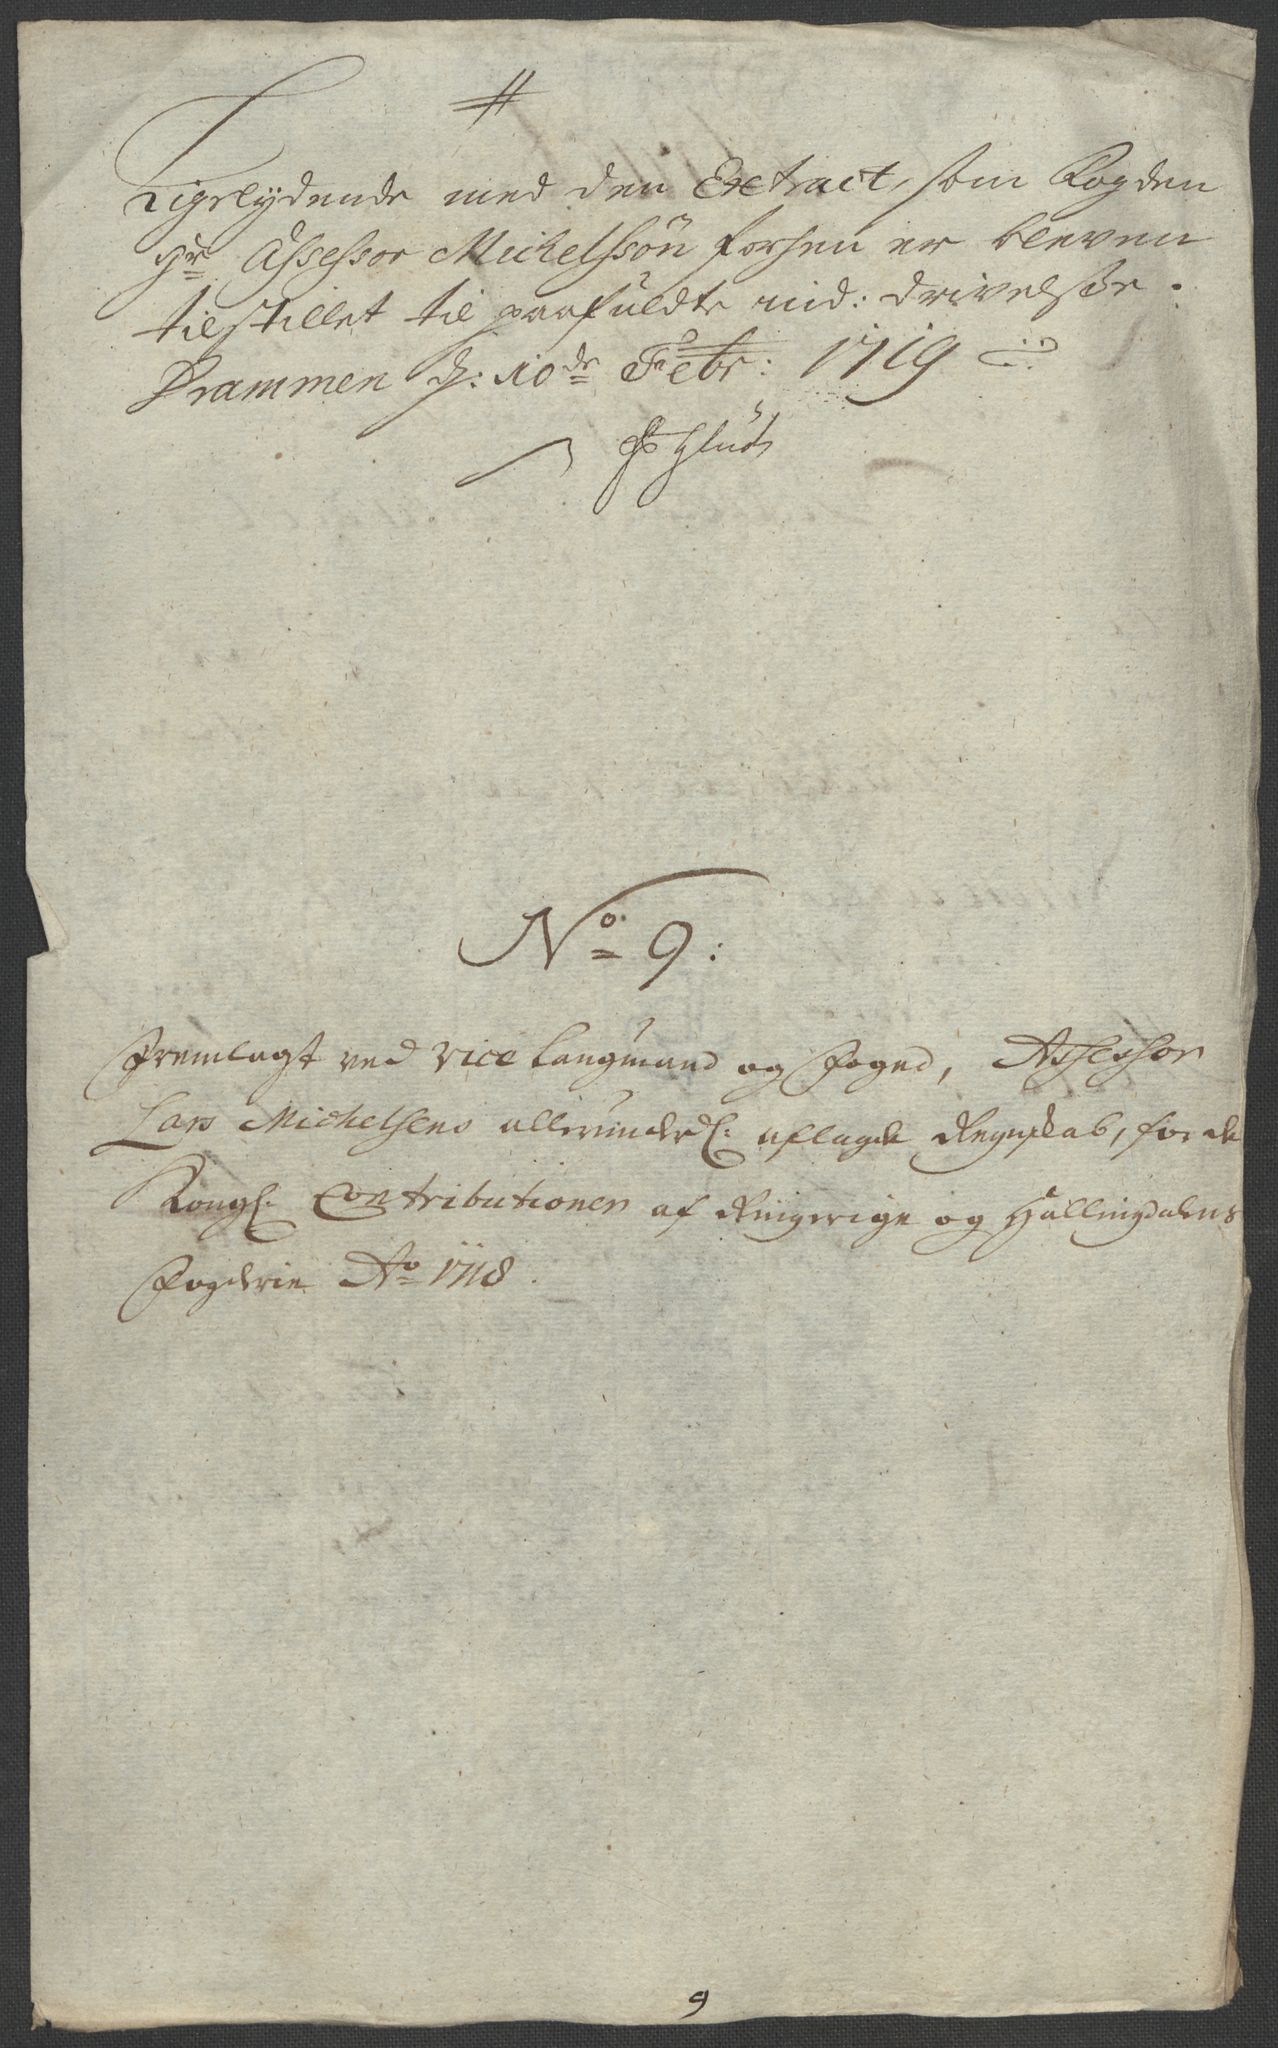 Ligelydende med den Extract, som Fogden
Hr Assessor Michelssøn forhen er bleven
tilstillet til paafuldte ind: drivelsse.
Drammen d: 10de Febr: 1719
No 9:
Fremlagt ved Vice Laugmand og Foged, Assessor
Lars Michelsens allerunderd: aflagde Regnskab, for de
Kongl: Contributioner af Ringerige og Hallingdalens
Fogderie Ao 1718.
9